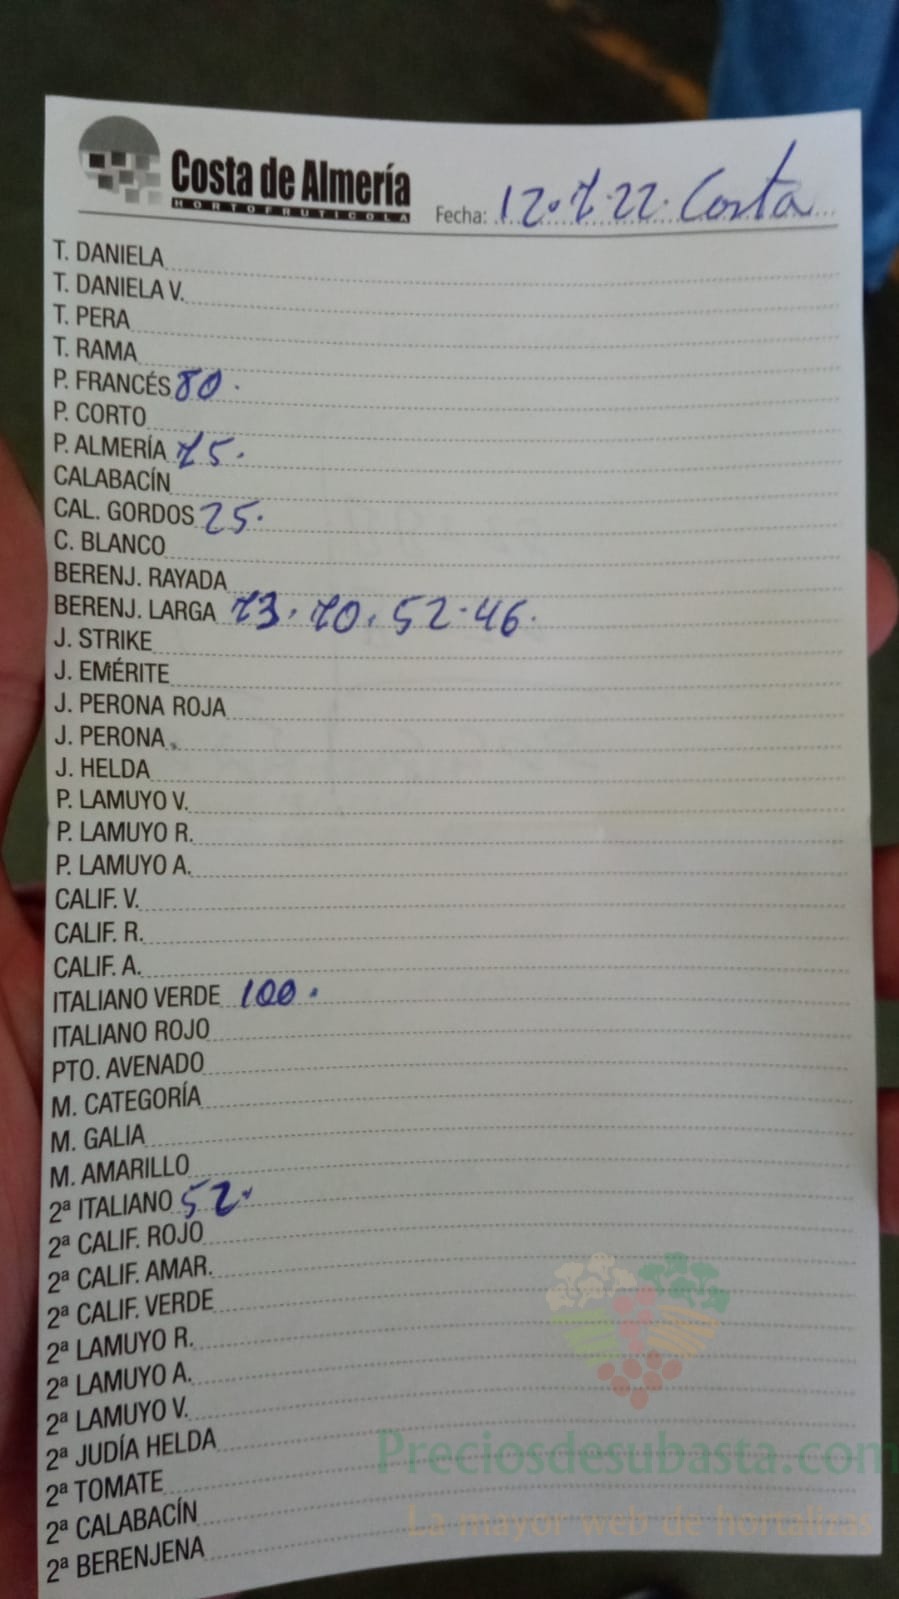 Costa de Almería
HORTOFRUTICOLA
Fecha: 12.7.22. Costa
T. DANIELA
T. DANIELA V.
T. PERA
T. RAMA
P. FRANCÉS 80.
P. CORTO
P. ALMERÍA 75.
CALABACÍN
CAL. GORDOS 25.
C. BLANCO
BERENJ. RAYADA
BERENJ. LARGA 73. 70. 52. 46.
J. STRIKE
J. EMÉRITE
J. PERONA ROJA
J. PERONA
J. HELDA
P. LAMUYO V.
P. LAMUYO R.
P. LAMUYO A.
CALIF. V.
CALIF. R.
CALIF. A.
ITALIANO VERDE 100.
ITALIANO ROJO
PTO. AVENADO
M. CATEGORÍA
M. GALIA
M. AMARILLO
2ª ITALIANO 52.
2ª CALIF. ROJO
2ª CALIF. AMAR.
2ª CALIF. VERDE
2ª LAMUYO R.
2ª LAMUYO A.
2ª LAMUYO V.
2ª JUDÍA HELDA
2ª TOMATE
2ª CALABACÍN
2ª BERENJENA
Preciosdesubasta.com
La mayor web de hortalizas